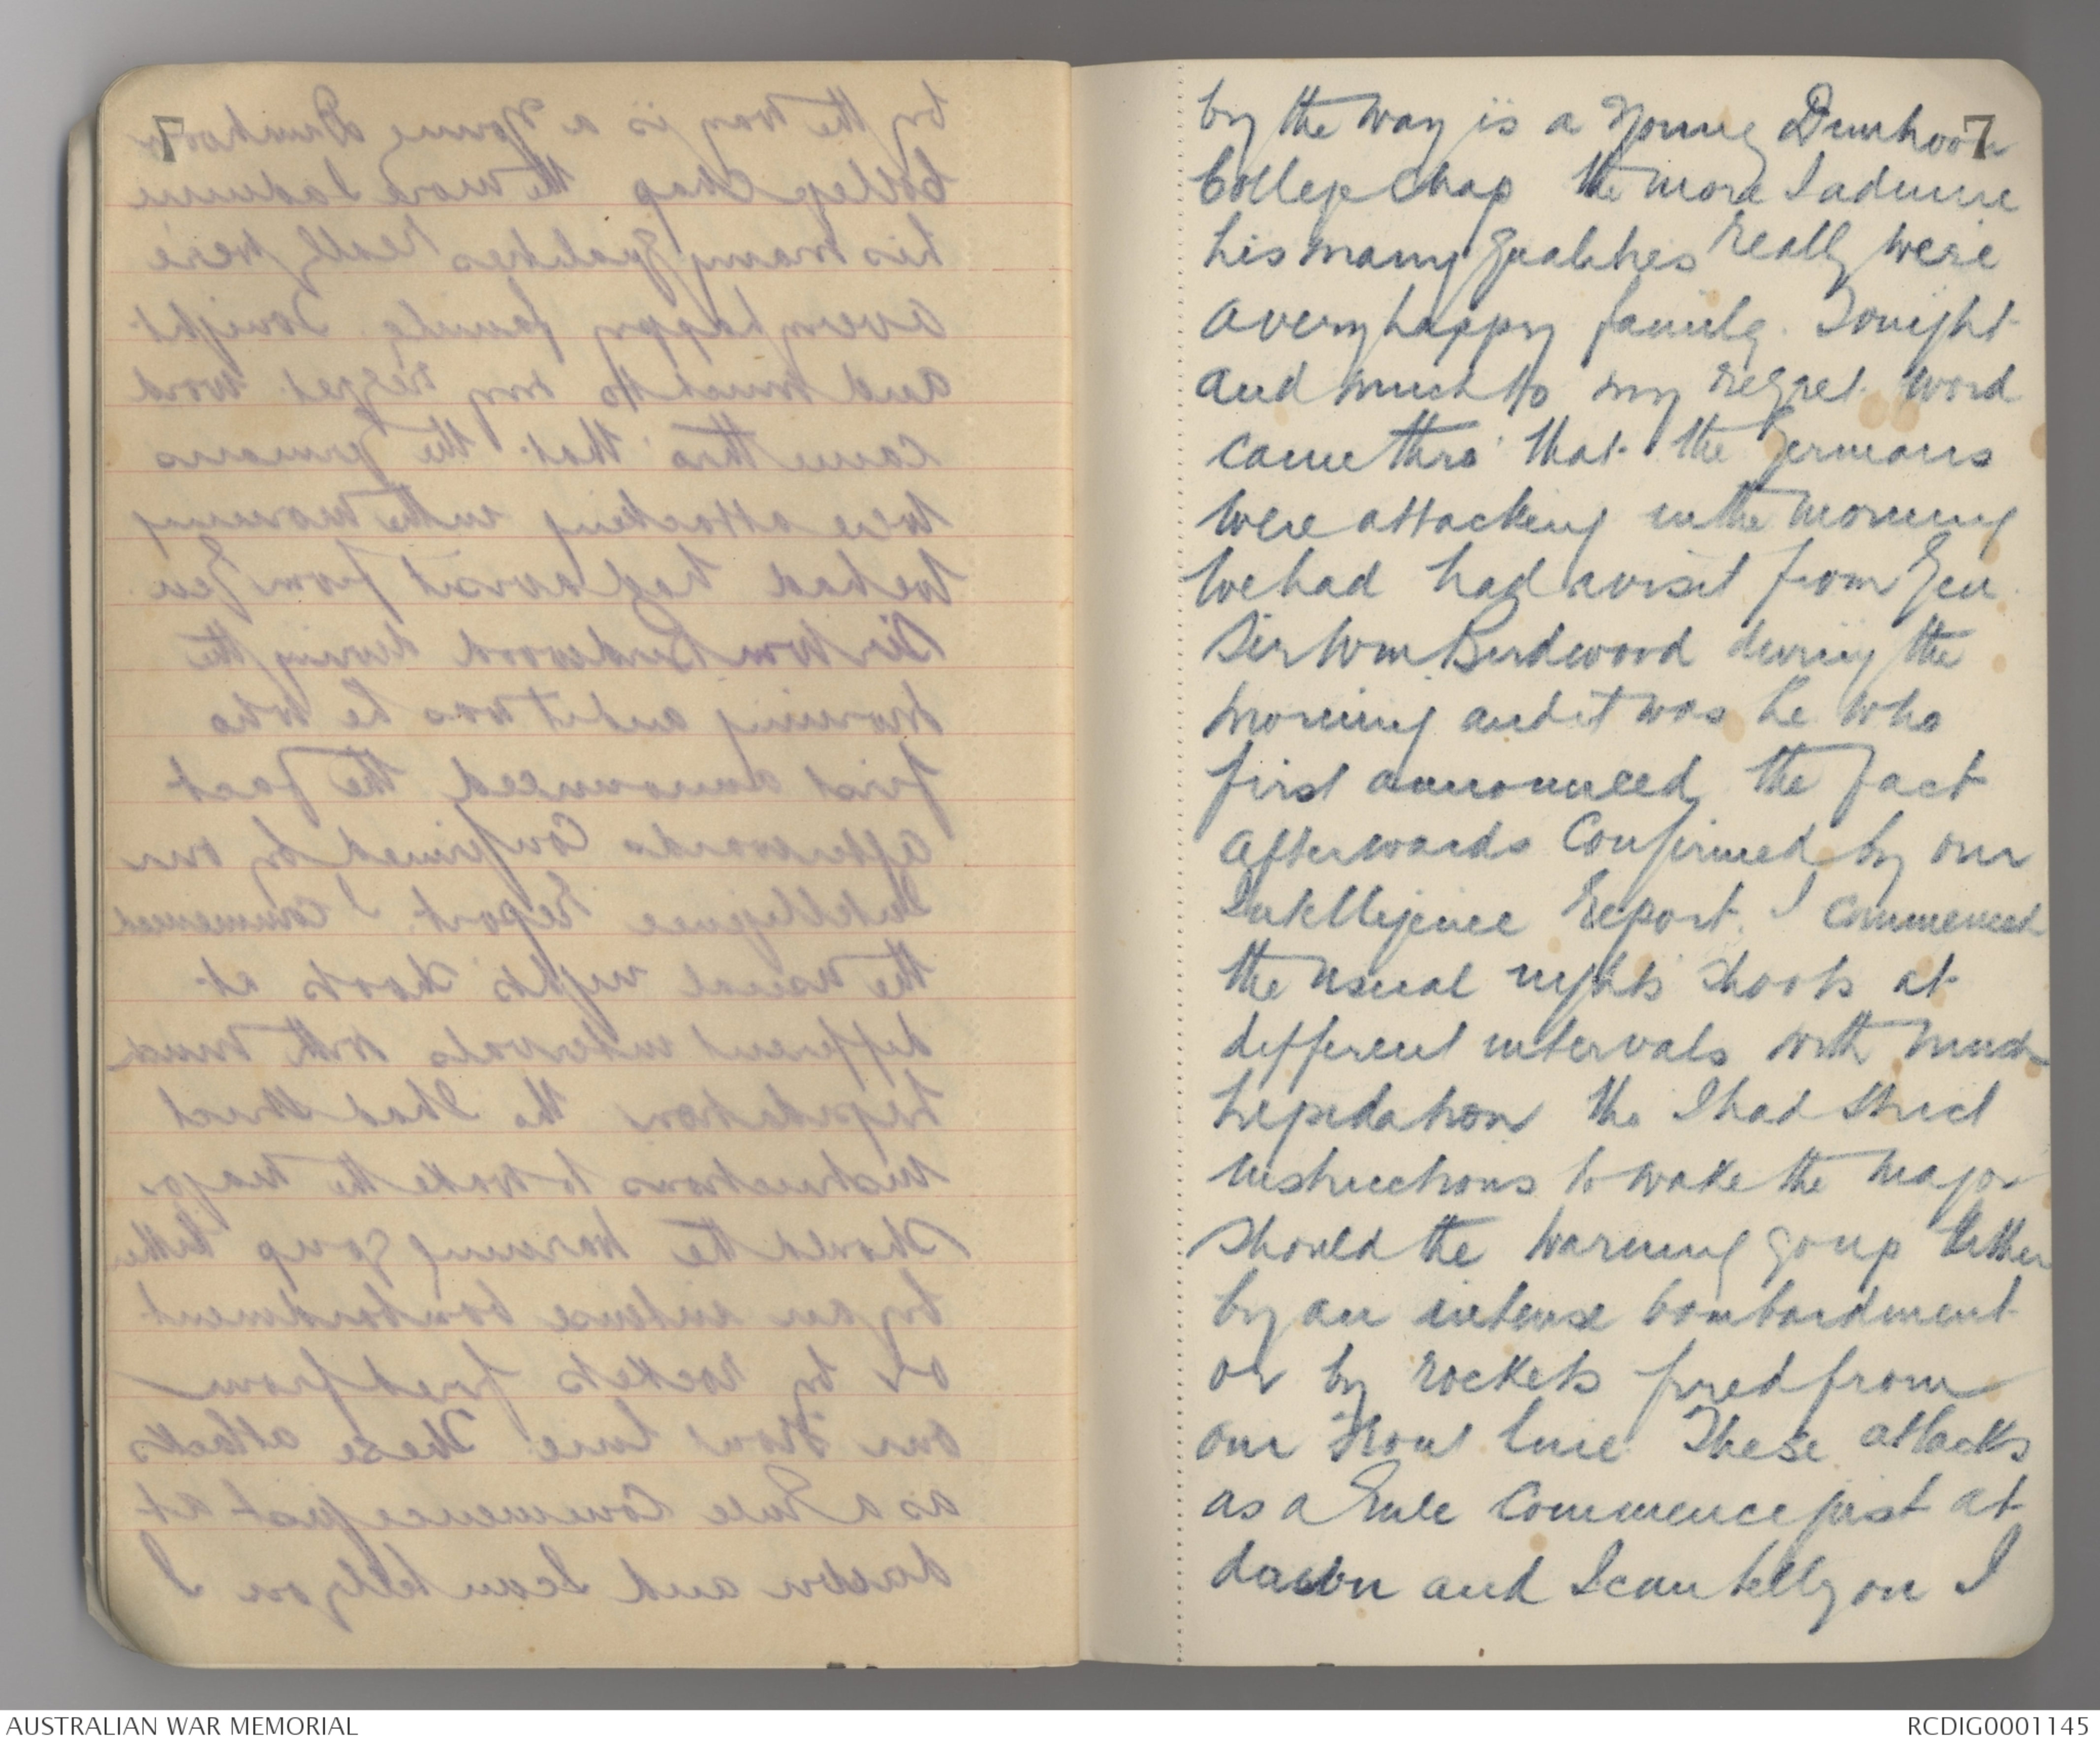 7
by the way is a young Duntroon
College chap the more I admire
his many qualities really were
a very happy family. Tonight
and much to my regret word
came thro' that the Germans
were attacking in the morning
we had had a visit from Gen.
Sir Wm Birdwood during the
morning and it was he who
first announced the fact
afterwards confirmed by our
Intelligence Report. I commenced
the usual nights shoots at
different intervals with much
trepidation tho I had strict
instructions to wake the Major
should the warning go up either
by an intense bombardment
or by rockets fired from
our front line These attacks
as a rule commence just at
dawn and I can tell you I
AUSTRALIAN WAR MEMORIAL
RCDIG0001145